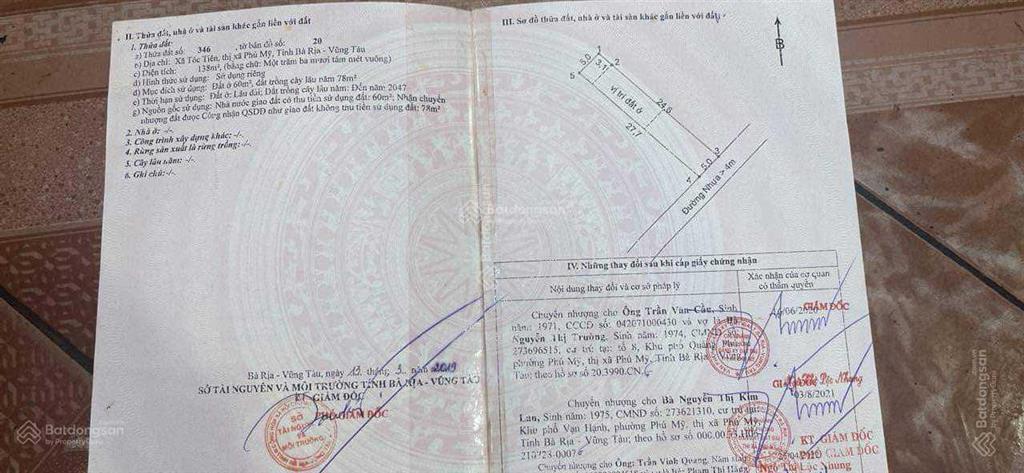 II. Thửa đất, nhà ở và tài sản khác gắn liền với đất
1. Thửa đất:
a) Thửa đất số: 346 , tờ bản đồ số: 20
b) Địa chỉ: Xã Tóc Tiên, thị xã Phú Mỹ, Tỉnh Bà Rịa - Vũng Tàu
c) Diện tích: 138m², (bằng chữ: Một trăm ba mươi tám mét vuông)
d) Hình thức sử dụng: Sử dụng riêng
đ) Mục đích sử dụng: Đất ở 60m², đất trồng cây lâu năm 78m²
e) Thời hạn sử dụng: Đất ở: Lâu dài; Đất trồng cây lâu năm: Đến năm 2047
g) Nguồn gốc sử dụng: Nhà nước giao đất có thu tiền sử dụng đất: 60m²; Nhận chuyển
nhượng đất được Công nhận QSDĐ như giao đất không thu tiền sử dụng đất: 78m²
2. Nhà ở: -/-
3. Công trình xây dựng khác: -/-
4. Rừng sản xuất là rừng trồng: -/-
5. Cây lâu năm: -/-
6. Ghi chú: -/-
Bà Rịa - Vũng Tàu, ngày 19 tháng 3 năm 2019
SỞ TÀI NGUYÊN VÀ MÔI TRƯỜNG TỈNH BÀ RỊA - VŨNG TÀU
KT GIÁM ĐỐC
PHÓ GIÁM ĐỐC
SỞ
TÀI NGUYÊN
VÀ
MÔI TRƯỜNG
III. Sơ đồ thửa đất, nhà ở và tài sản khác gắn liền với đất
B
1
5.0
3.1
2
5
vị trí đất ở
24.6
27.7
3
5.0
4
Đường Nhựa > 4m
IV. Những thay đổi sau khi cấp giấy chứng nhận
Nội dung thay đổi và cơ sở pháp lý
Xác nhận của cơ quan
có thẩm quyền
Chuyển nhượng cho Ông Trần Văn Cầu, Sinh
năm: 1971, CCCD số: 042071000430 và vợ là Bà
Nguyễn Thị Trường, Sinh năm: 1974, CMND số:
273696515, cư trú tại: tổ 8, Khu phố Quảng
phường Phú Mỹ, thị xã Phú Mỹ, Tỉnh Bà Rịa - Vũng
Tàu; theo hồ sơ số 20.3990.CN.
GIÁM ĐỐC
Chuyển nhượng cho Bà Nguyễn Thị Kim
Lan, Sinh năm: 1975, CMND số: 273621310, cư trú tại
Khu phố Vạn Hạnh, phường Phú Mỹ, thị xã Phú Mỹ,
Tỉnh Bà Rịa - Vũng Tàu; theo hồ sơ số
03/8/2021
KT. GIÁM ĐỐC
PHÓ GIÁM ĐỐC
Ngô Thị Lộc Nhung
Chuyển nhượng cho Ông: Trần Vinh Quang, Năm sinh:
Batdongsan
by PropertyGuru
Batdongsan
Batdongsan
by PropertyGuru